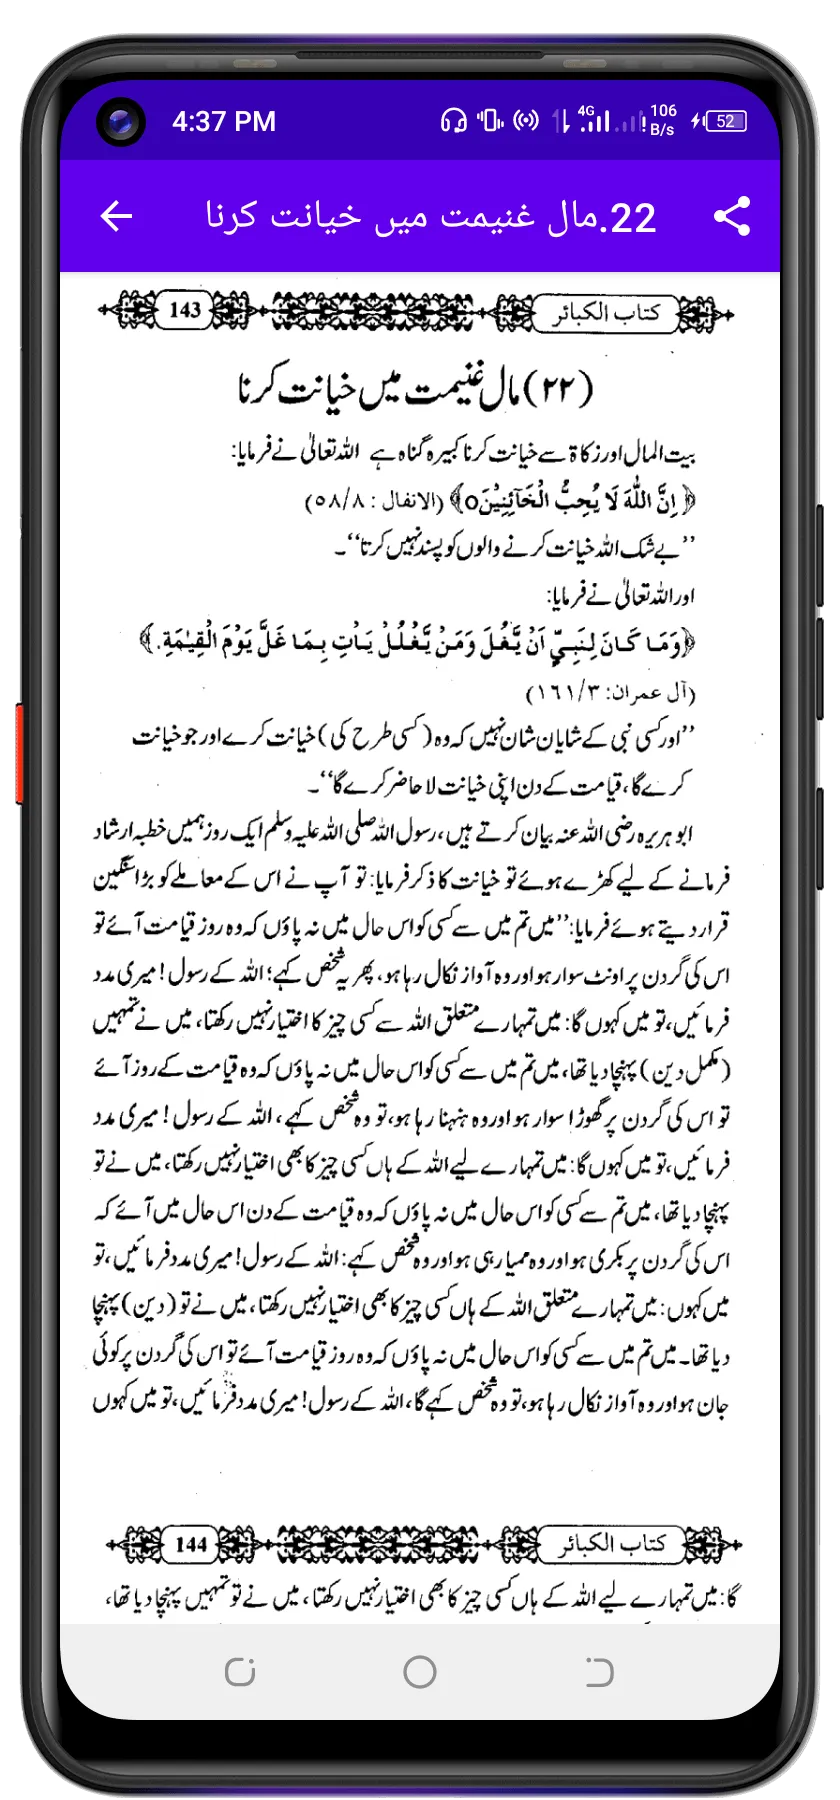 4:37 PM
4G
106 B/s
52
22.مال غنیمت میں خیانت کرنا
کتاب الکبائر
143
(۲۲) مال غنیمت میں خیانت کرنا
بیت المال اور زکاۃ سے خیانت کرنا کبیرہ گناہ ہے اللہ تعالیٰ نے فرمایا:
﴿اِنَّ اللّٰهَ لَا يُحِبُّ الْخَآئِنِيْنَ﴾ (الانفال : ۵۸/۸)
’’بے شک اللہ خیانت کرنے والوں کو پسند نہیں کرتا‘‘۔
اور اللہ تعالیٰ نے فرمایا:
﴿وَمَا كَانَ لِنَبِيٍّ اَنْ يَّغُلَّ وَمَنْ يَّغْلُلْ يَاْتِ بِمَا غَلَّ يَوْمَ الْقِيٰمَةِ.﴾
(آل عمران: ۱۶۱/۳)
’’اور کسی نبی کے شایان شان نہیں کہ وہ (کسی طرح کی) خیانت کرے اور جو خیانت
کرے گا، قیامت کے دن اپنی خیانت لا حاضر کرے گا‘‘۔
ابو ہریرہ رضی اللہ عنہ بیان کرتے ہیں، رسول اللہ صلی اللہ علیہ وسلم ایک روز ہمیں خطبہ ارشاد
فرمانے کے لیے کھڑے ہوئے تو خیانت کا ذکر فرمایا: تو آپ نے اس کے معاملے کو بڑا سنگین
قرار دیتے ہوئے فرمایا: ’’میں تم میں سے کسی کو اس حال میں نہ پاؤں کہ وہ روز قیامت آئے تو
اس کی گردن پر اونٹ سوار ہو اور وہ آواز نکال رہا ہو، پھر یہ شخص کہے؛ اللہ کے رسول! میری مدد
فرمائیں، تو میں کہوں گا: میں تمہارے متعلق اللہ سے کسی چیز کا اختیار نہیں رکھتا، میں نے تمہیں
(مکمل دین) پہنچا دیا تھا، میں تم میں سے کسی کو اس حال میں نہ پاؤں کہ وہ قیامت کے روز آئے
تو اس کی گردن پر گھوڑا سوار ہو اور وہ ہنہنا رہا ہو، تو وہ شخص کہے، اللہ کے رسول! میری مدد
فرمائیں، تو میں کہوں گا: میں تمہارے لیے اللہ کے ہاں کسی چیز کا بھی اختیار نہیں رکھتا، میں نے تو
پہنچا دیا تھا، میں تم سے کسی کو اس حال میں نہ پاؤں کہ وہ قیامت کے دن اس حال میں آئے کہ
اس کی گردن پر بکری ہو اور وہ ممیا رہی ہو اور وہ شخص کہے: اللہ کے رسول! میری مدد فرمائیں، تو
میں کہوں: میں تمہارے متعلق اللہ کے ہاں کسی چیز کا بھی اختیار نہیں رکھتا، میں نے تو (دین) پہنچا
دیا تھا۔ میں تم میں سے کسی کو اس حال میں نہ پاؤں کہ وہ روز قیامت آئے تو اس کی گردن پر کوئی
جان ہو اور وہ آواز نکال رہا ہو، تو وہ شخص کہے گا، اللہ کے رسول! میری مدد فرمائیں، تو میں کہوں
کتاب الکبائر
144
گا: میں تمہارے لیے اللہ کے ہاں کسی چیز کا بھی اختیار نہیں رکھتا، میں نے تو تمہیں پہنچا دیا تھا،